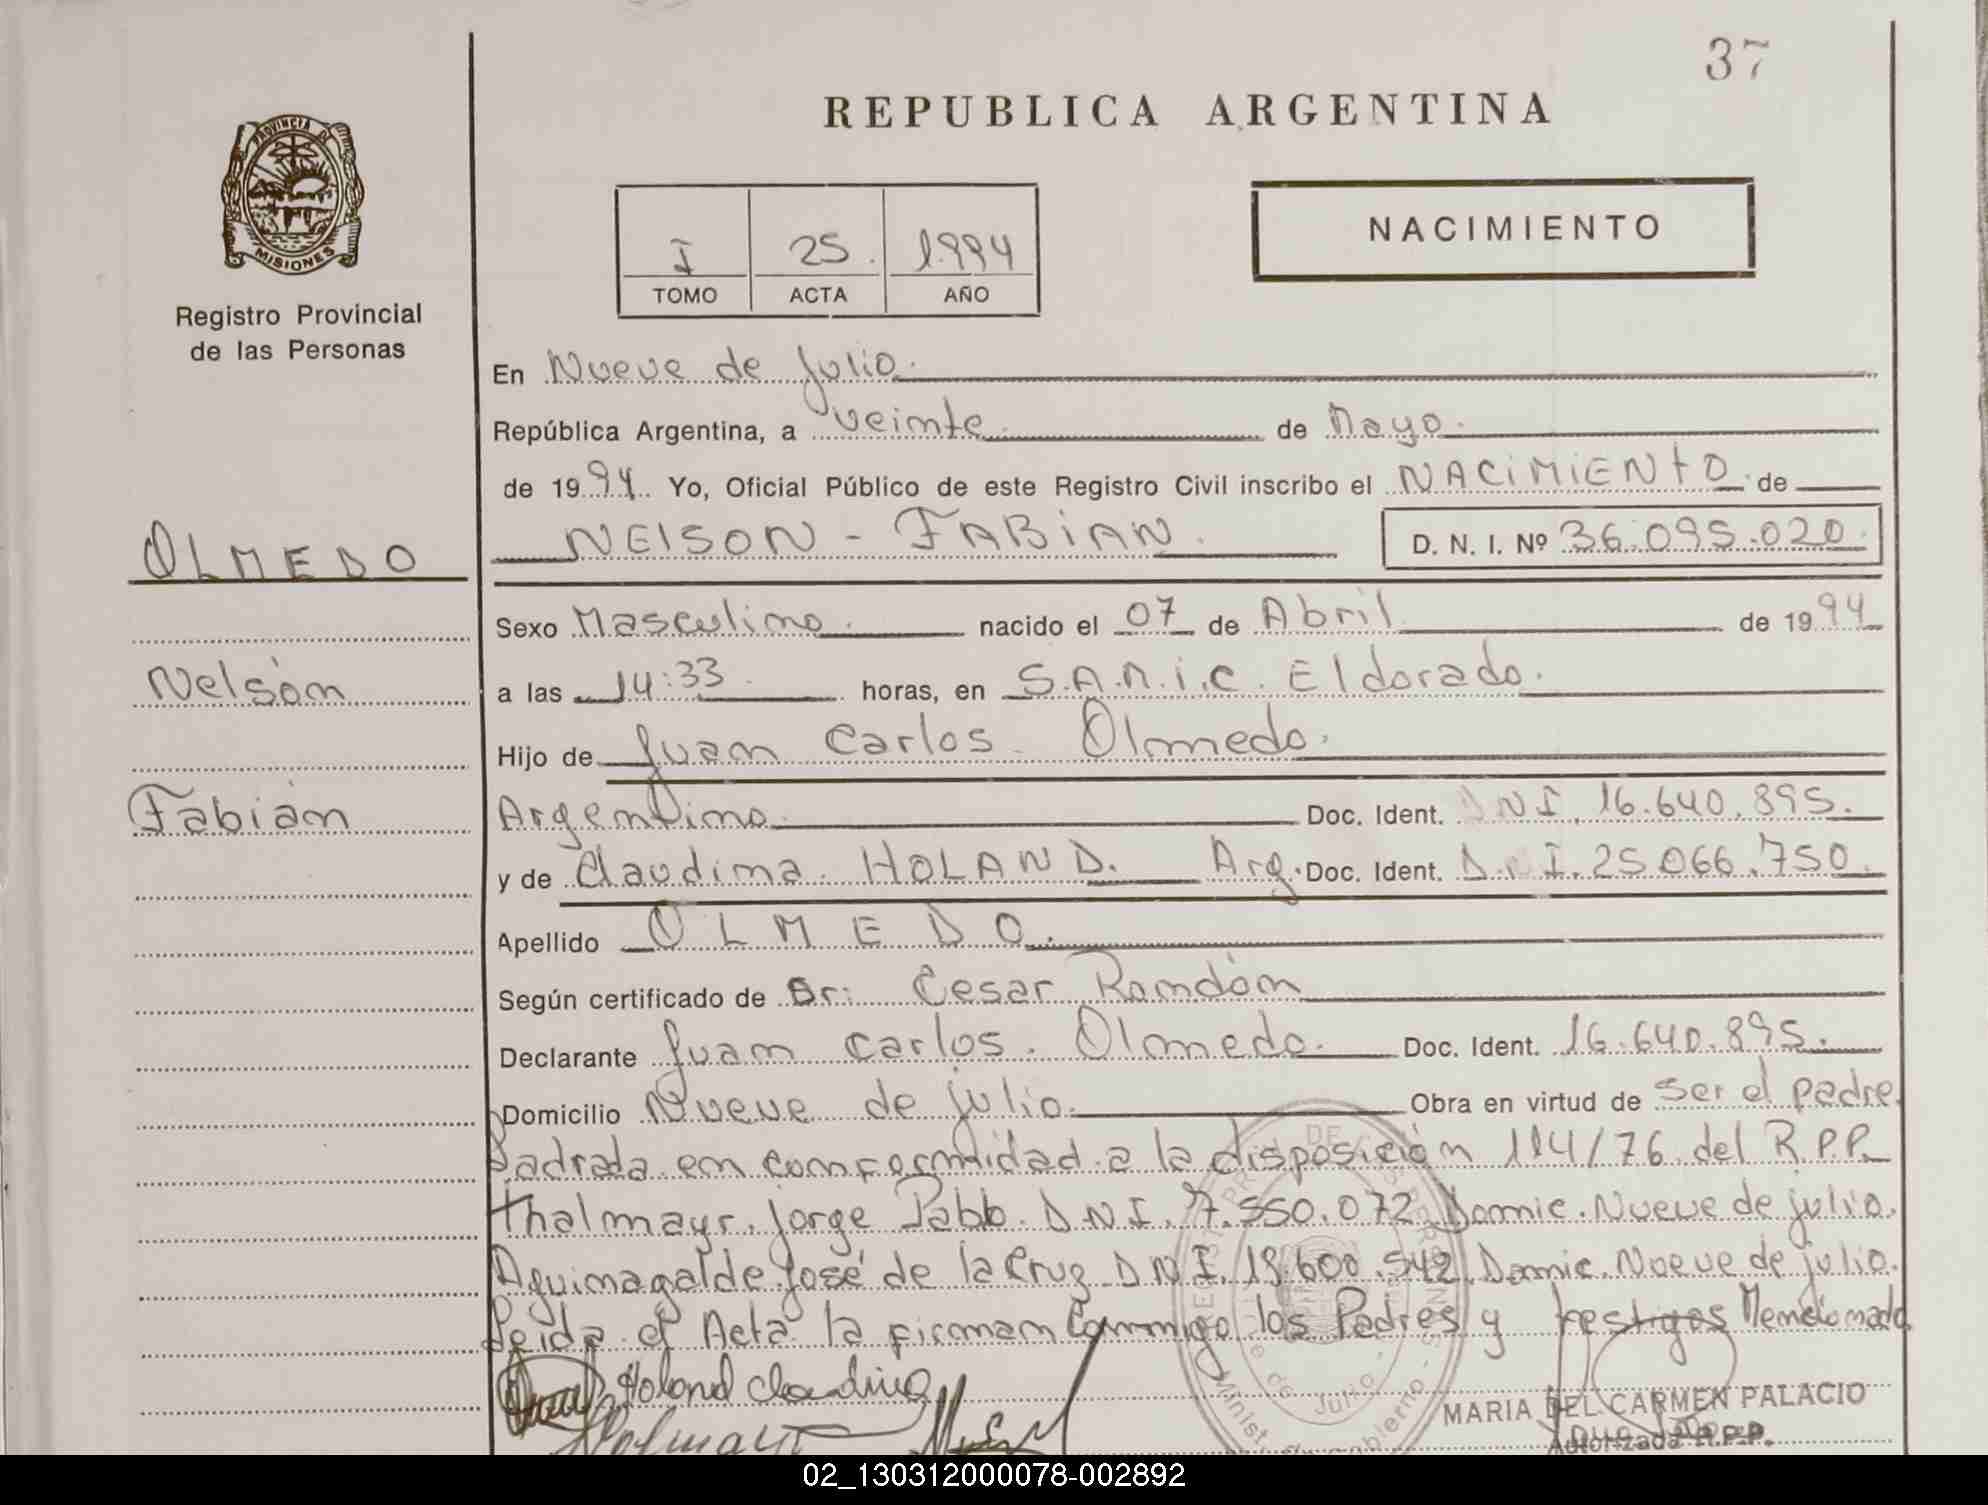 37
REPUBLICA ARGENTINA
PROVINCIA DE
MISIONES
Registro Provincial
de las Personas
I 25. 1.994
TOMO ACTA AÑO
NACIMIENTO
En Nueve de Julio.
República Argentina, a veinte de Mayo.
de 1994. Yo, Oficial Público de este Registro Civil inscribo el NACIMIENTO de
OLMEDO
NELSON - FABIAN. D. N. I. Nº 36.095.020.
Sexo Masculino. nacido el 07 de Abril de 1994
Nelson
a las 14:33 horas, en S.A.M.i.c. Eldorado.
Hijo de Juan Carlos Olmedo.
Fabian
Argentino Doc. Ident. DNI. 16.640.895.
y de Claudina HOLAND. Arg. Doc. Ident. D.N.I. 25.066.750.
Apellido OLMEDO.
Según certificado de Dr: Cesar Ramdon
Declarante Juan Carlos Olmedo. Doc. Ident. 16.640.895.
Domicilio Nueve de julio. Obra en virtud de ser el padre.
en conformidad a la disposición 114/76 del R.P.P.
Thalmayr, Jorge Pablo D.N.I. 7.550.072 Domic. Nueve de julio.
Aguinagalde José de la Cruz D.N.I. 13.600.542 Domic. Nueve de julio.
Leida el Acta la firman conmigo los Padres y testigos Mencionado
Holand Claudina
MARIA DEL CARMEN PALACIO
Autorizada R.P.P.
02_130312000078-002892